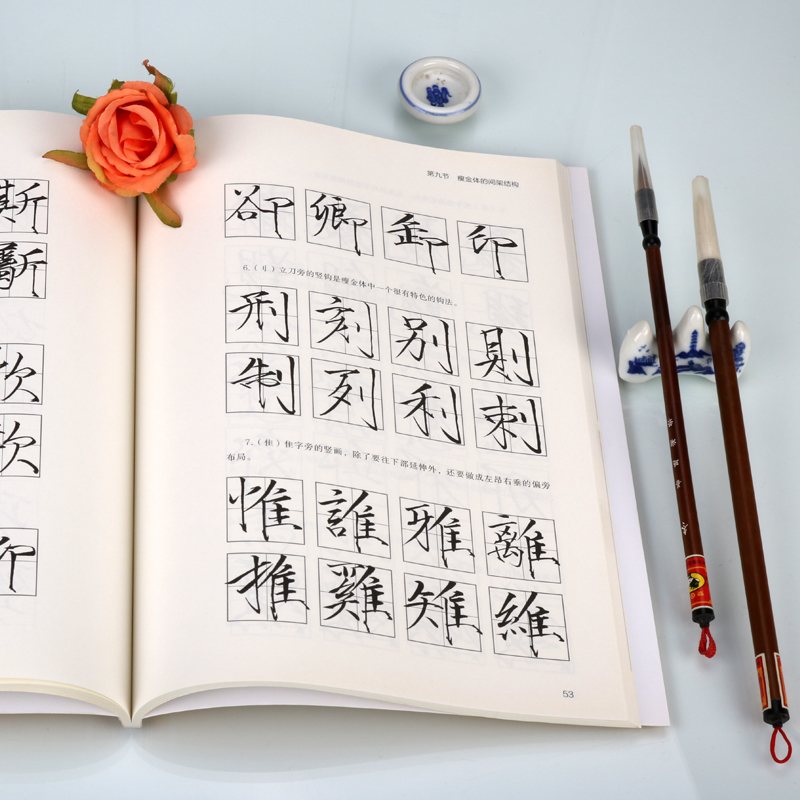 第九节 瘦金体的间架结构
卻 卿 卸 印
6.(刂)立刀旁的竖钩是瘦金体中一个很有特色的钩法。
刑 刻 别 則
制 列 利 刺
7.(隹)隹字旁的竖画，除了要往下部延伸外，还要做成左昂右垂的偏旁
布局。
惟 誰 雅 離
推 雞 雉 維
53
斯
斸
欣
欽
卯